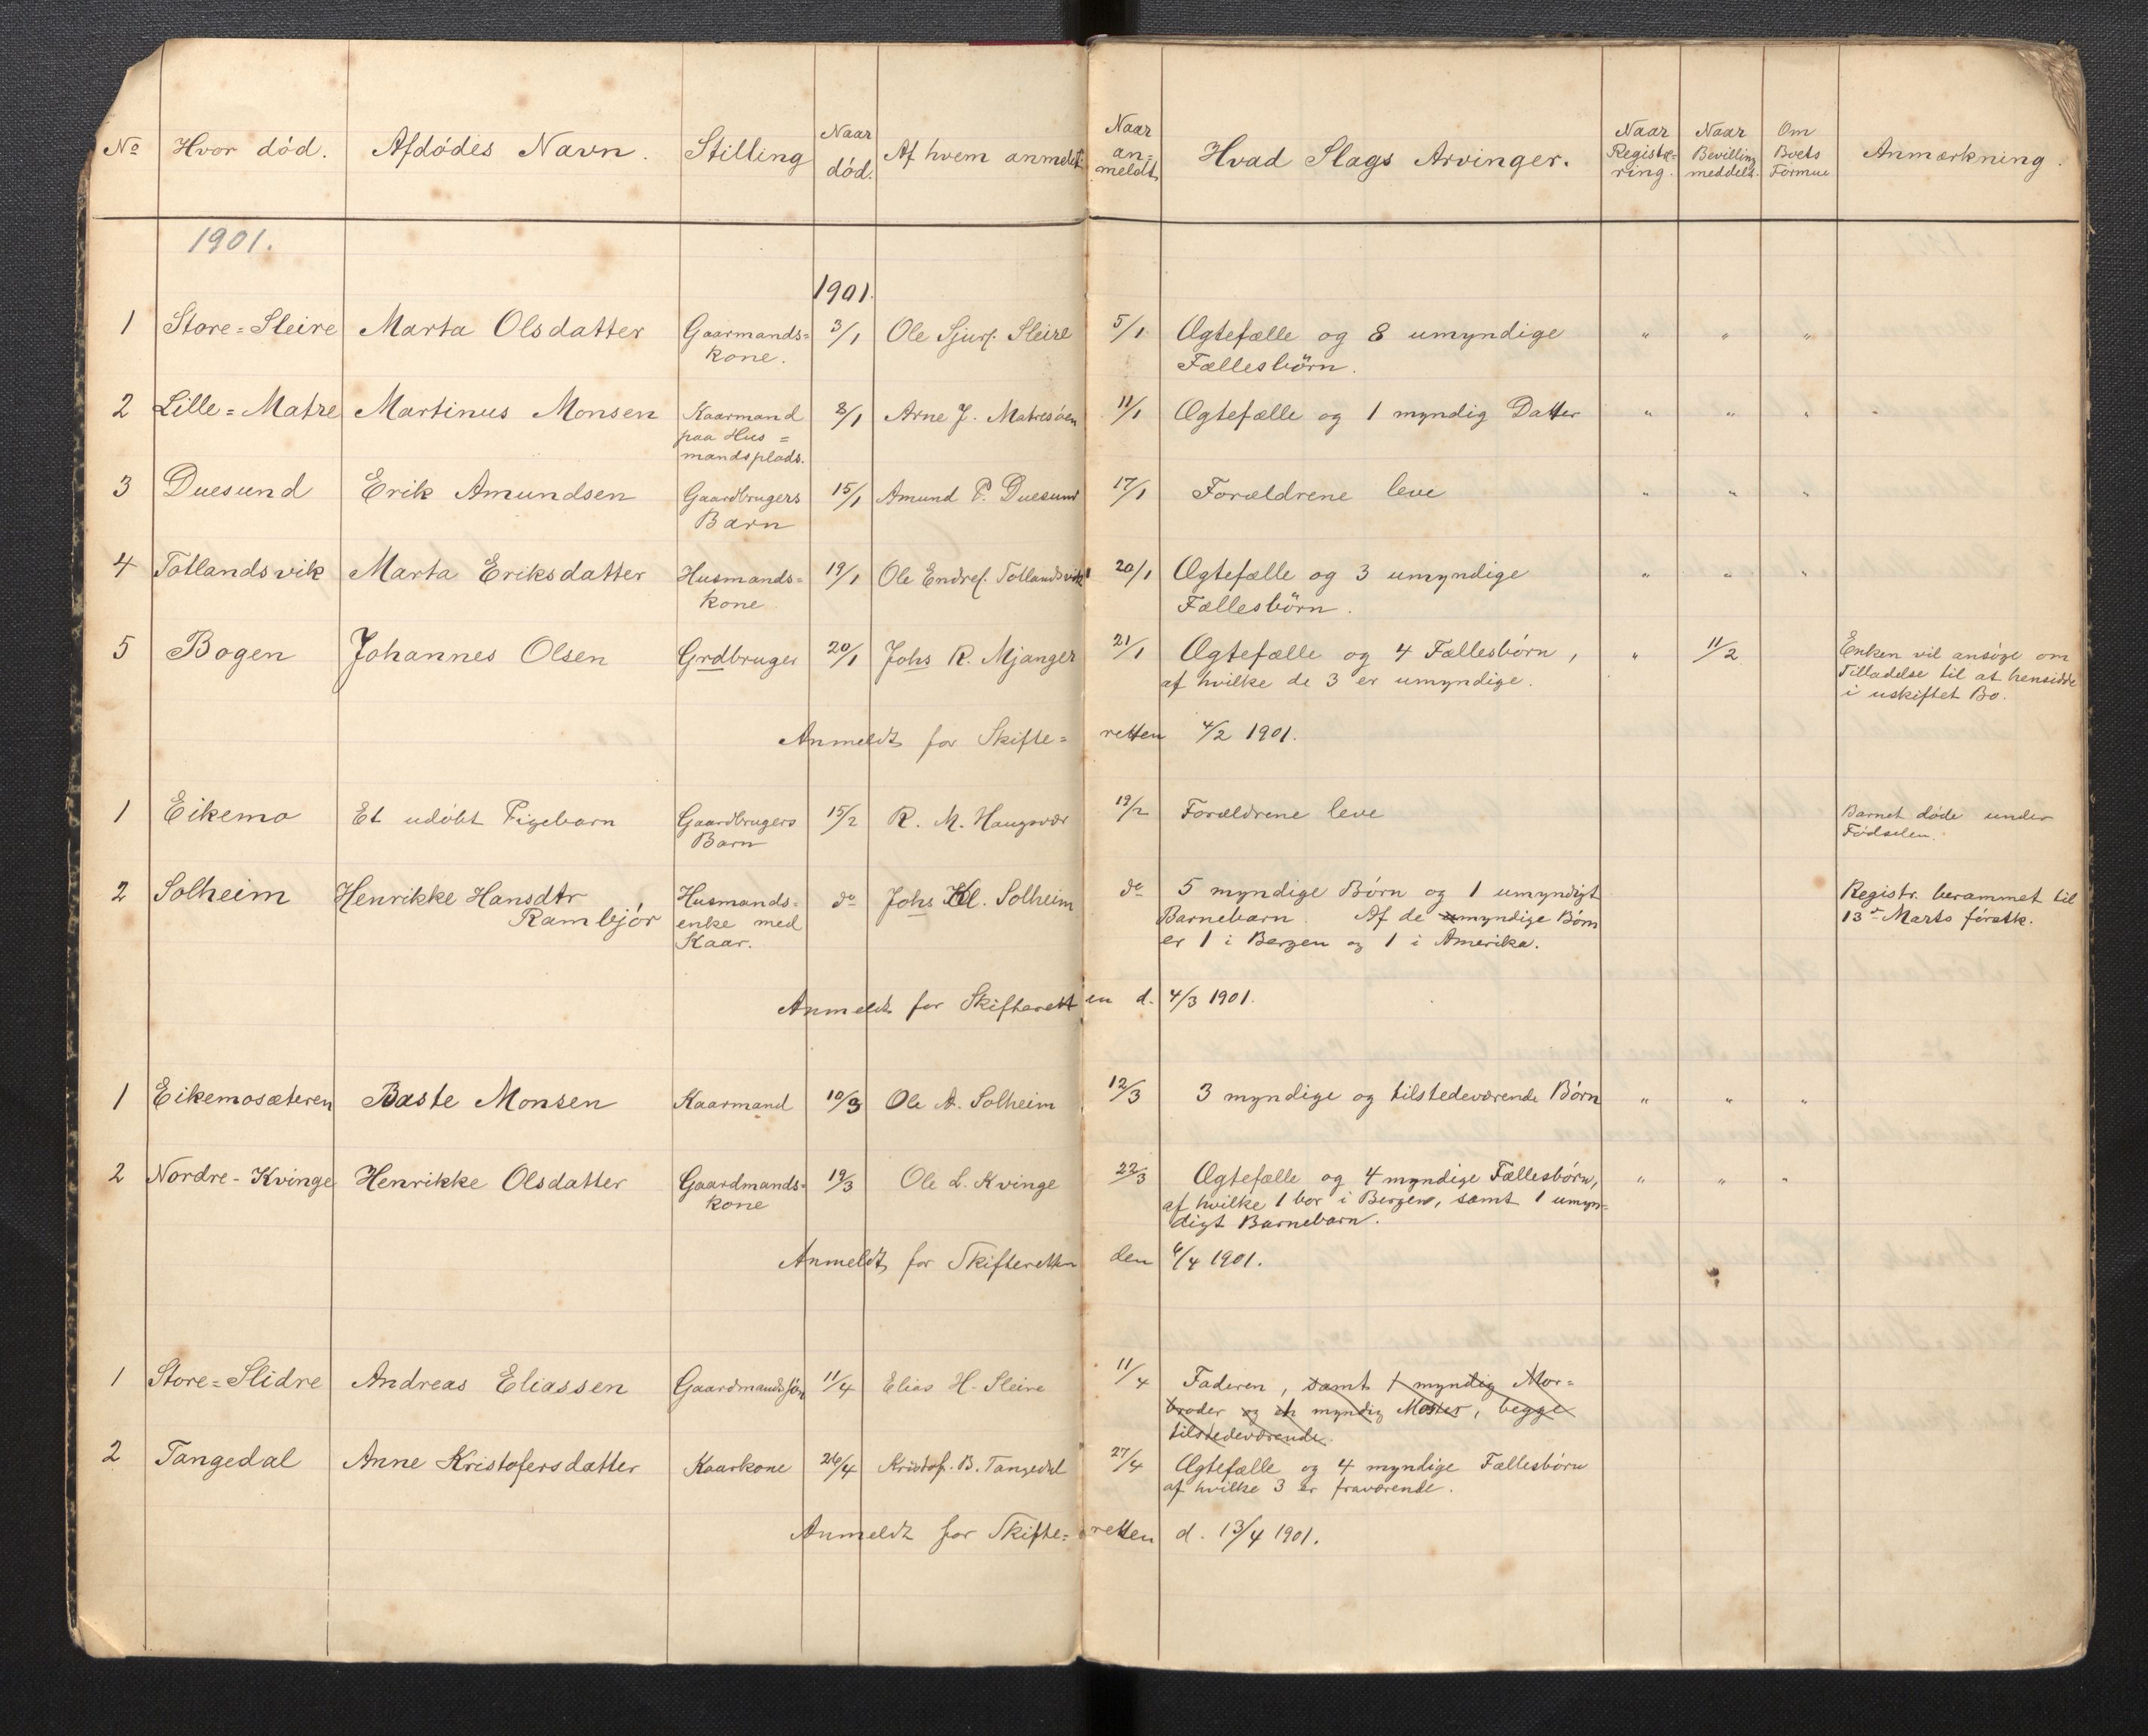 No Hvor död. Afdödes Navn. Stilling Naar död. Af hvem anmeldt Naar an-meldt Hvad Slags Arvinger. Naar Registe-ring. Naar Bevilling meddelt. Om Boets Formue Anmærkning.
1901.
1901.
1 Store=Sleire Marta Olsdatter Gaarmands= 3/1 Ole Sjurs. Sleire 5/1 Ægtefælle og 8 umyndige " " "
kone. Fællesbörn.
2 Lille=Matre Martinus Monsen Kaarmand 8/1 Arne J. Matresöen 11/1 Ægtefælle og 1 myndig Datter " " " "
paa Hus=
mandsplads.
3 Duesund Erik Amundsen Gaardbrugers 15/1 Amund P. Duesund 17/1 Forældrene leve " " "
Barn
4 Totlandsvik Marta Eriksdatter Husmands= 19/1 Ole Endres. Totlandsvik 20/1 Ægtefælle og 3 umyndige " " "
kone Fællesbörn.
5 Bogen Johannes Olsen Grdbruger 20/1 Johs R. Mjanger 21/1 Ægtefælle og 4 Fællesbörn, " 11/2 Enken vil ansöge om
af hvilke de 3 er umyndige. Tilladelse til at hensidde
i uskiftet Bo.
Anmeldt for Skifte=retten 4/2 1901.
1 Eikemo Et udöbt Pigebarn Gaardbrugers 15/2 R. M. Haugsvær 19/2 Forældrene leve Barnet döde under
Barn Födselen.
2 Solheim Henrikke Hansdtr Husmands= do Johs Kl. Solheim do 5 myndige Börn og 1 umyndigt Registr. berammet til
Rambjör enke med Barnebarn. Af de myndige Börn 13de Marts förstk.
Kaar. er 1 i Bergen og 1 i Amerika.
Anmeldt for Skifteretten d. 4/3 1901.
1 Eikemosæteren Baste Monsen Kaarmand 10/3 Ole A. Solheim 12/3 3 myndige og tilstedeværende Börn " " "
2 Nordre-Kvinge Henrikke Olsdatter Gaardmands= 19/3 Ole L. Kvinge 22/3 Ægtefælle og 4 myndige Fællesbörn, " " "
kone af hvilke 1 bor i Bergen, samt 1 umyn=
digt Barnebarn.
Anmeldt for Skifteretten den 6/4 1901.
1 Store=Slidre Andreas Eliassen Gaardmandssön 11/4 Elias H. Sleire 11/4 Faderen, samt 1 myndig Mor=
broder og en myndig Moster, begge
tilstedeværende.
2 Tangedal Anne Kristofersdatter Kaarkone 26/4 Kristof. B. Tangedal 27/4 Ægtefælle og 4 myndige Fællesbörn
af hvilke 3 er fraværende.
Anmeldt for Skifte=retten d. 13/4 1901.